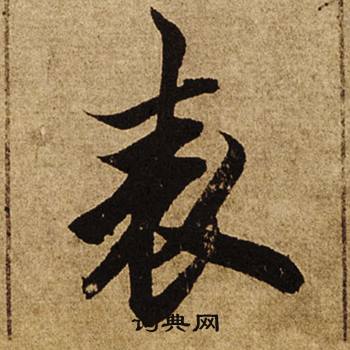 表
词典网